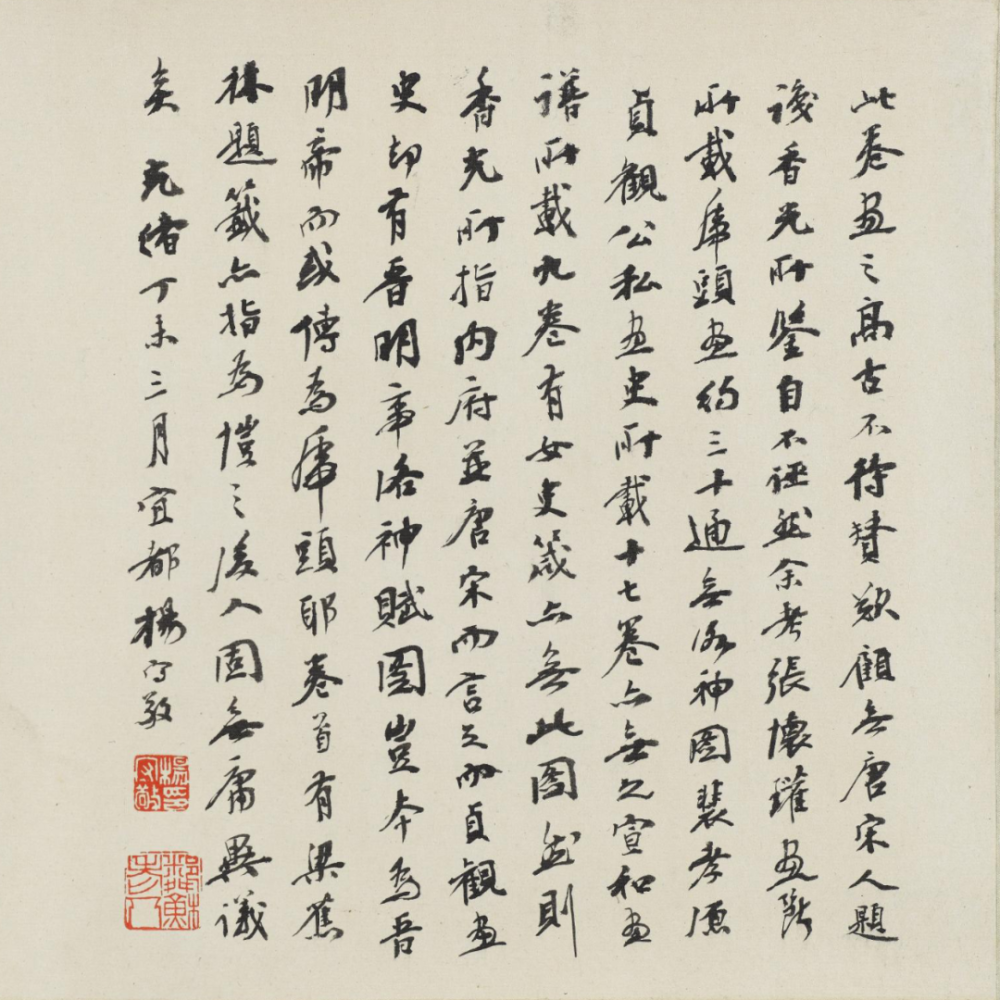 此卷畫之高古不待贊歎顧無唐宋人題
識香光所鑒自不誣然余考張懷瓘畫斷
所載虎頭畫約三十通無洛神圖裴孝源
貞觀公私畫史所載十七卷亦無之宣和畫
譜所載九卷有女史箴亦無此圖然則
香光所指內府並唐宋而言之而貞觀畫
史却有晉明帝洛神賦圖豈本為晉
明帝而或傳為虎頭耶卷首有梁蕉
林題籤亦指為愷之後人固無庸異議
矣 光緒丁未三月宜都楊守敬
楊守敬印
鄰蘇老人